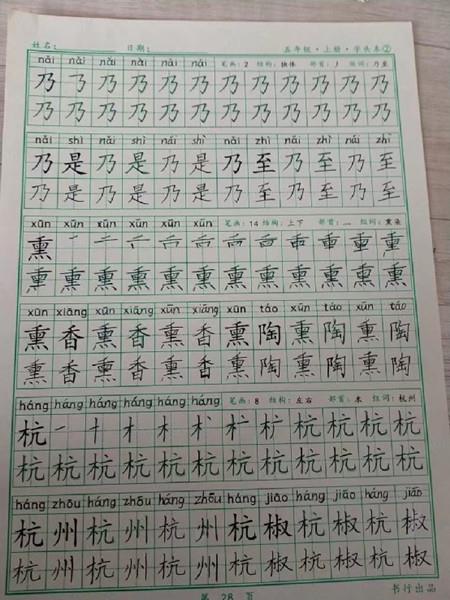 姓名： 日期： 五年级·上册·字头本②
nǎi nǎi nǎi nǎi nǎi 笔画：2 结构：独体 部首：丿 组词：乃至
乃 乃 乃 乃 乃 乃 乃 乃 乃 乃
乃 乃 乃 乃 乃 乃 乃 乃 乃 乃 乃
nǎi shì nǎi shì nǎi shì nǎi zhì nǎi zhì nǎi zhì
乃 是 乃 是 乃 是 乃 至 乃 至 乃 至
乃 是 乃 是 乃 是 乃 至 乃 至 乃 至
xūn xūn xūn xūn xūn xūn 笔画：14 结构：上下 组词：熏染
熏 重 重
熏 熏 熏 熏 熏 熏 熏 熏 熏 熏 熏
xūn xiāng xūn xiāng xūn xiāng xūn táo xūn táo xūn táo
熏 香 熏 香 熏 香 熏 陶 熏 陶 熏 陶
熏 香 熏 香 熏 香 熏 陶 熏 陶 熏 陶
háng háng háng háng háng háng 笔画：8 结构：左右 部首：木 组词：杭州
杭 一 十 才 木 杭 杭 杭 杭
杭 杭 杭 杭 杭 杭 杭 杭 杭 杭 杭
háng zhōu háng zhōu háng zhōu háng jiāo háng jiāo háng jiāo
杭 州 杭 州 杭 州 杭 椒 杭 椒 杭 椒
杭 州 杭 州 杭 州 杭 椒 杭 椒 杭 椒
第 28 页 书行出品